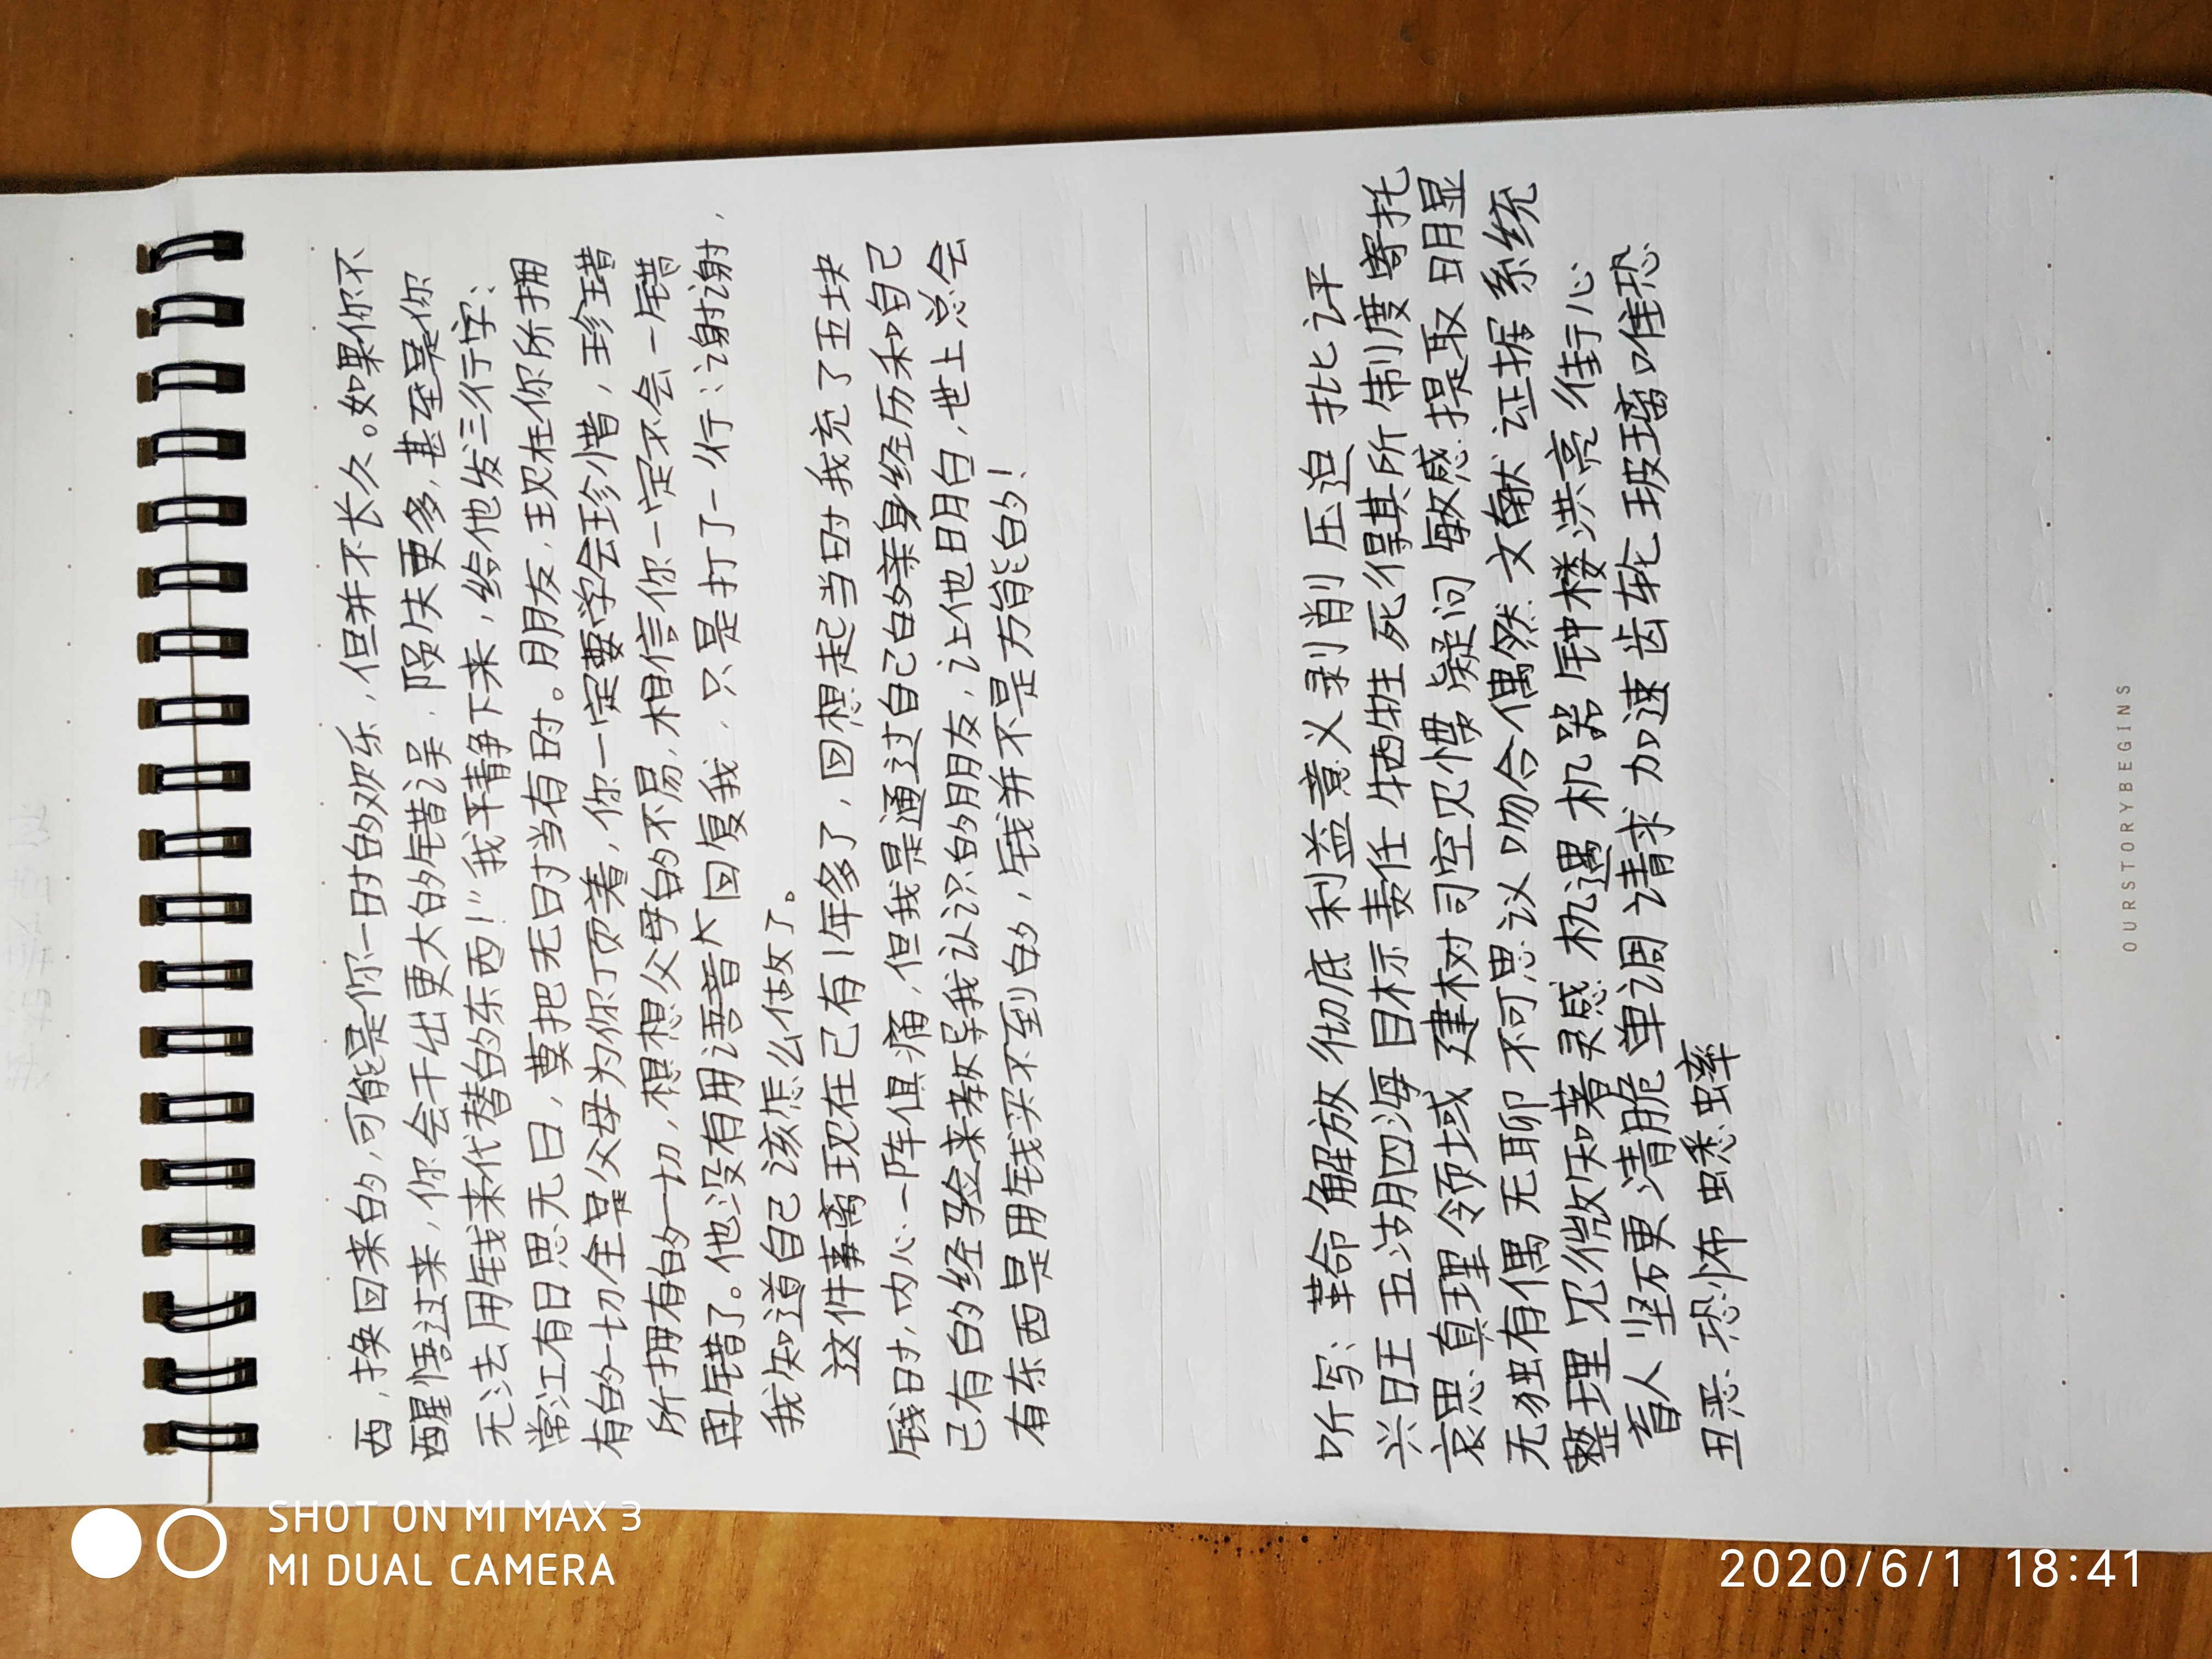 西，换回来的，可能是你一时的欢乐，但并不长久。如果你不
醒悟过来，你会干出更大的错误，陨失更多，甚至是你
无法用钱来代替的东西！”我平静下来，给他发三行字：
常江有日思无日，莫把无时当有时。朋友，现在你所拥
有的一切全靠父母为你顶着，你一定要学会珍惜，珍惜
所拥有的一切，想想父母的不易，相信你一定不会一错
再错了。他没有用语音大回复我，只是打了一行：谢谢，
我知道自己该怎么做了。
这件事离现在已有1年多了，回想起当时我充了五块
钱时，内心一阵俱痛，但我是通过自己的亲身经历和自己
已有的经验来教导我认识的朋友，让他明白，世上总会
有东西是用钱买不到的，钱并不是万能的！
听写：革命 解放 彻底 利益 意义 剥削 压迫 批评
兴旺 五湖四海 目标 责任 牺牲 死得其所 制度 寄托
哀思 真理 领域 建树 司空见惯 疑问 敏感 提取 明显
无独有偶 无聊 不可思议 吻合 偶然 文献 证据 系统
整理 见微知著 灵感 机遇 机器 钟楼 洪亮 往心
畜人 坚硬 清脆 单调 请求 加速 齿轮 玻璃 唯恐
丑恶 恐怖 蟋蟀
OURSTORYBEGINS
SHOT ON MI MAX 3
MI DUAL CAMERA
2020/6/1 18:41